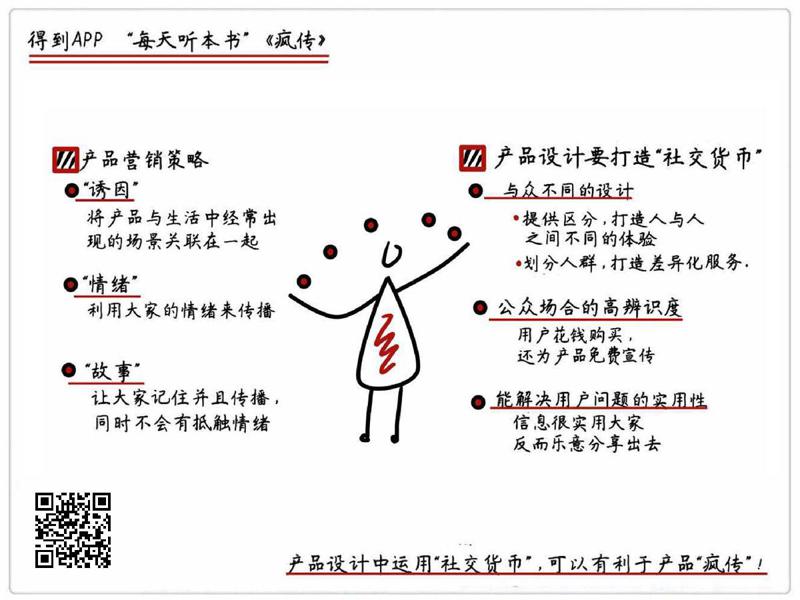 得到APP “每天听本书”《疯传》
产品营销策略
“诱因”
将产品与生活中经常出
现的场景关联在一起
“情绪”
利用大家的情绪来传播
“故事”
让大家记住并且传播,
同时不会有抵触情绪
产品设计要打造“社交货币”
与众不同的设计
提供区分,打造人与人
之间不同的体验
划分人群,打造差异化服务.
公众场合的高辨识度
用户花钱购买,
还为产品免费宣传
能解决用户问题的实用性
信息很实用大家
反而乐意分享出去
产品设计中运用“社交货币”,可以有利于产品“疯传”!